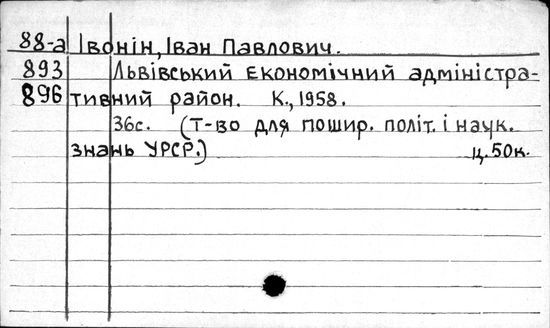 88-а Івонін, Іван Павлович.
893 Львівський економічний адміністра-
896 тивний район. К., 1958.
36с. (Т-во для пошир. політ. і наук.
знань УРСР.) ц. 50к.